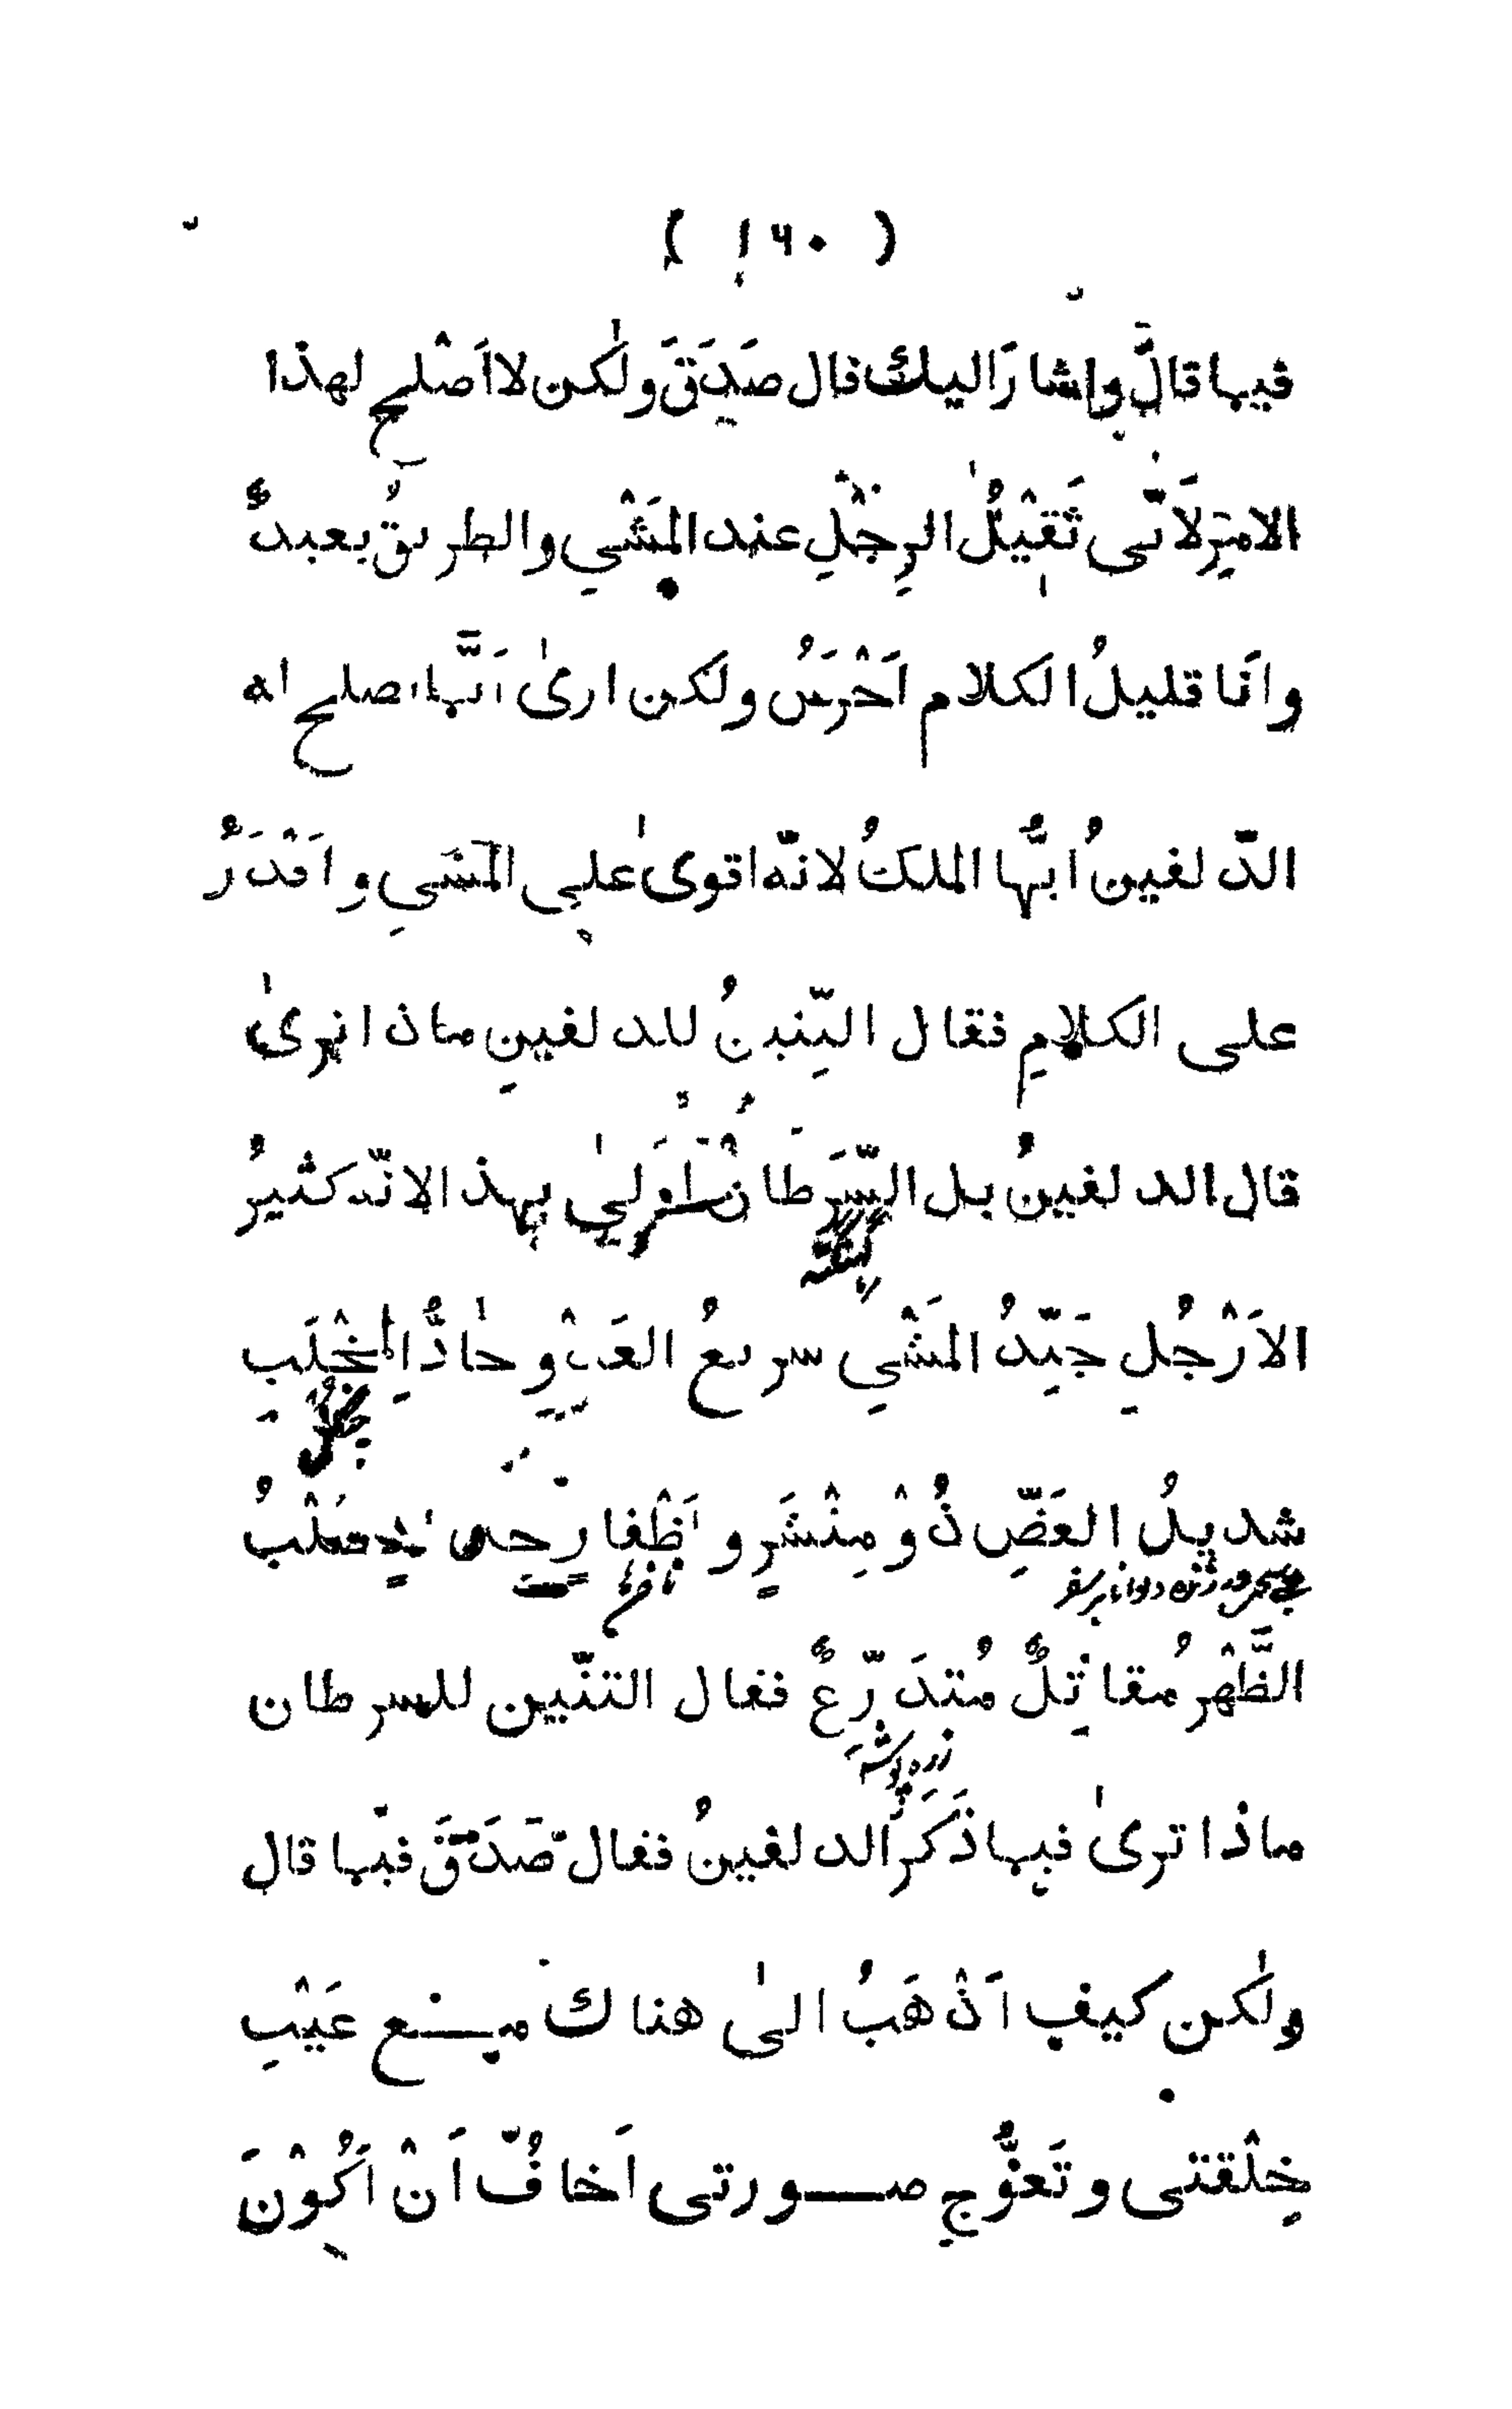 ( ۱۶۰ )
فيما قالَّ واشارَ اليك قال صَدَقَ ولٰكن لا اَصْلح لهذا
الامرِ لاَنّى ثَقِيْلُ الرِجْلِ عند المَشْيِ والطريقُ بعيدٌ
وانَا قليلُ الكلام اَخْرَسُ ولكن ارىٰ اَنَّما يصلح له
الدّلفينُ ايُّها الملكُ لانّه اقوىٰ على المشيِ واَقْدَرُ
على الكلامِ فقال التِّنينُ للدلفينِ ماذا ترىٰ
قال الدلفينُ بل السَّرَطانُ اَوْلىٰ بهذا لانّه كثيرُ
الاَرْجُلِ جَيِّدُ المَشْيِ سريعُ العَدْوِ حٰادُّ المِخْلَبِ
شديدُ العَضِّ ذُوْ مِنْشَرٍ واَظْفارٍ حدادٍ صُلْبُ
الظَّهْرِ مُقاتِلٌ مُتدَرِّعٌ فقال التنّين للسرطان
زره پوشه
ماذا ترىٰ فيما ذَكَرَ الدلفينُ فقال صَدَقَ فيما قال
ولٰكن كيف اَذْهَبُ الىٰ هناك مع عَيْبِ
خِلْقتى وتَعَوُّجِ صورتى اَخافُ اَنْ اَكُوْنَ